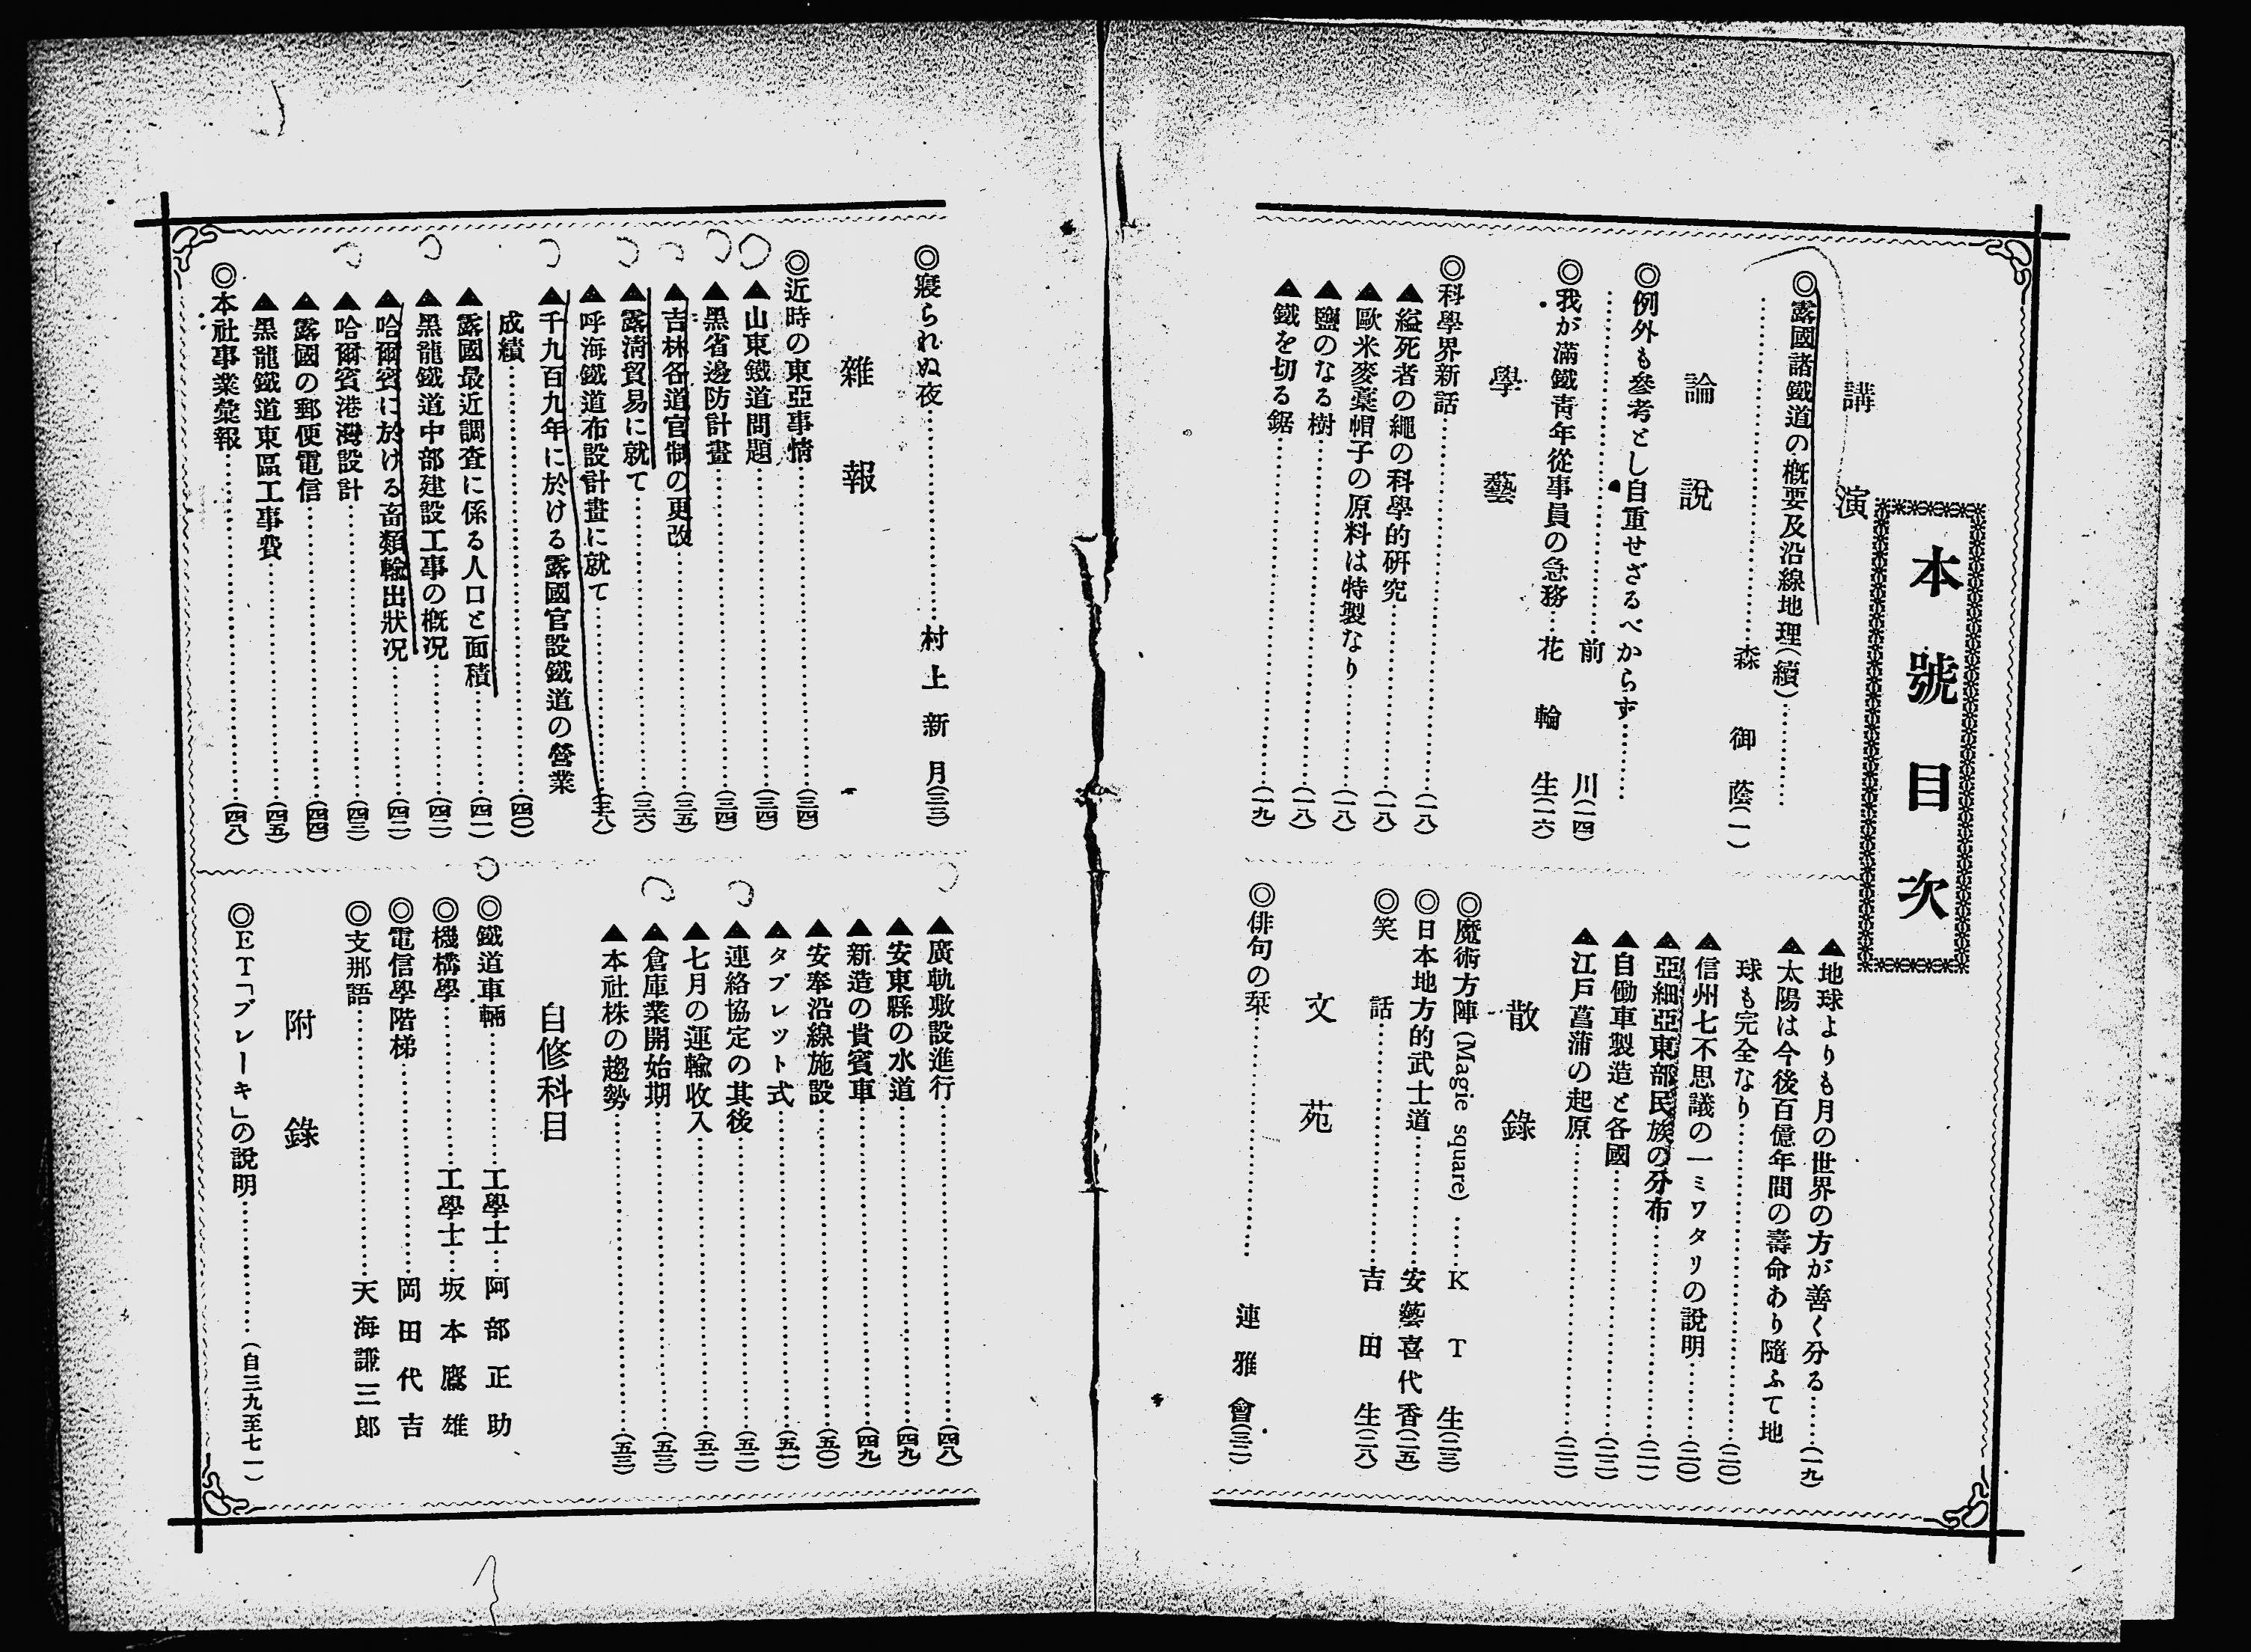 本號目次
講演
◎露國諸鐵道の槪要及沿線地理(續)…………
…………森御蔭(一)
論說
◎例外も參考とし自重せざるべからず…………
…………前川(一四)
◎我が滿鐵靑年從事員の急務…花輪生(一六)
學藝
◎科學界新話…………(一八)
▲縊死者の繩の科學的硏究…………(一八)
▲歐米麥藁帽子の原料は特製なり…………(一八)
▲鹽のなる樹…………(一八)
▲鐵を切る鋸…………(一九)
▲地球よりも月の世界の方が善く分る……(一九)
▲太陽は今後百億年間の壽命あり隨ふて地
球も完全なり…………(二〇)
▲信州七不思議の一ミワタリの說明…………(二〇)
▲亞細亞東部民族の分布…………(二一)
▲自働車製造と各國…………(二二)
▲江戶菖蒲の起原…………(二二)
散錄
◎魔術方陣(Magie square)……KT生(二三)
◎日本地方的武士道…………安藝喜代香(二五)
◎笑話…………吉田生(二八)
文苑
◎俳句の栞…………連雅會(三二)
◎寢られぬ夜…………村上新月(三三)
雜報
◎近時の東亞事情…………(三四)
▲山東鐵道問題…………(三四)
▲黑省邊防計畫…………(三四)
▲吉林各道官制の更改…………(三五)
▲露淸貿易に就て…………(三六)
▲呼海鐵道布設計畫に就て…………(三八)
▲千九百九年に於ける露國官設鐵道の營業
成績…………(四〇)
▲露國最近調査に係る人口と面積…………(四一)
▲黑龍鐵道中部建設工事の槪况…………(四二)
▲哈爾賓に於ける畜類輸出狀况…………(四二)
▲哈爾賓港灣設計…………(四三)
▲露國の郵便電信…………(四四)
▲黑龍鐵道東區工事費…………(四五)
◎本社事業彙報…………(四八)
▲廣軌敷設進行…………(四八)
▲安東縣の水道…………(四九)
▲新造の貴賓車…………(四九)
▲安奉沿線施設…………(五〇)
▲タブレット式…………(五一)
▲連絡協定の其後…………(五二)
▲七月の運輸收入…………(五二)
▲倉庫業開始期…………(五三)
▲本社株の趨勢…………(五三)
自修科目
◎鐵道車輛…………工學士…阿部正助
◎機構學…………工學士…坂本鷹雄
◎電信學階梯…………岡田代吉
◎支那語…………天海謙三郎
附錄
◎ET「ブレーキ」の說明…………(自三九至七一)